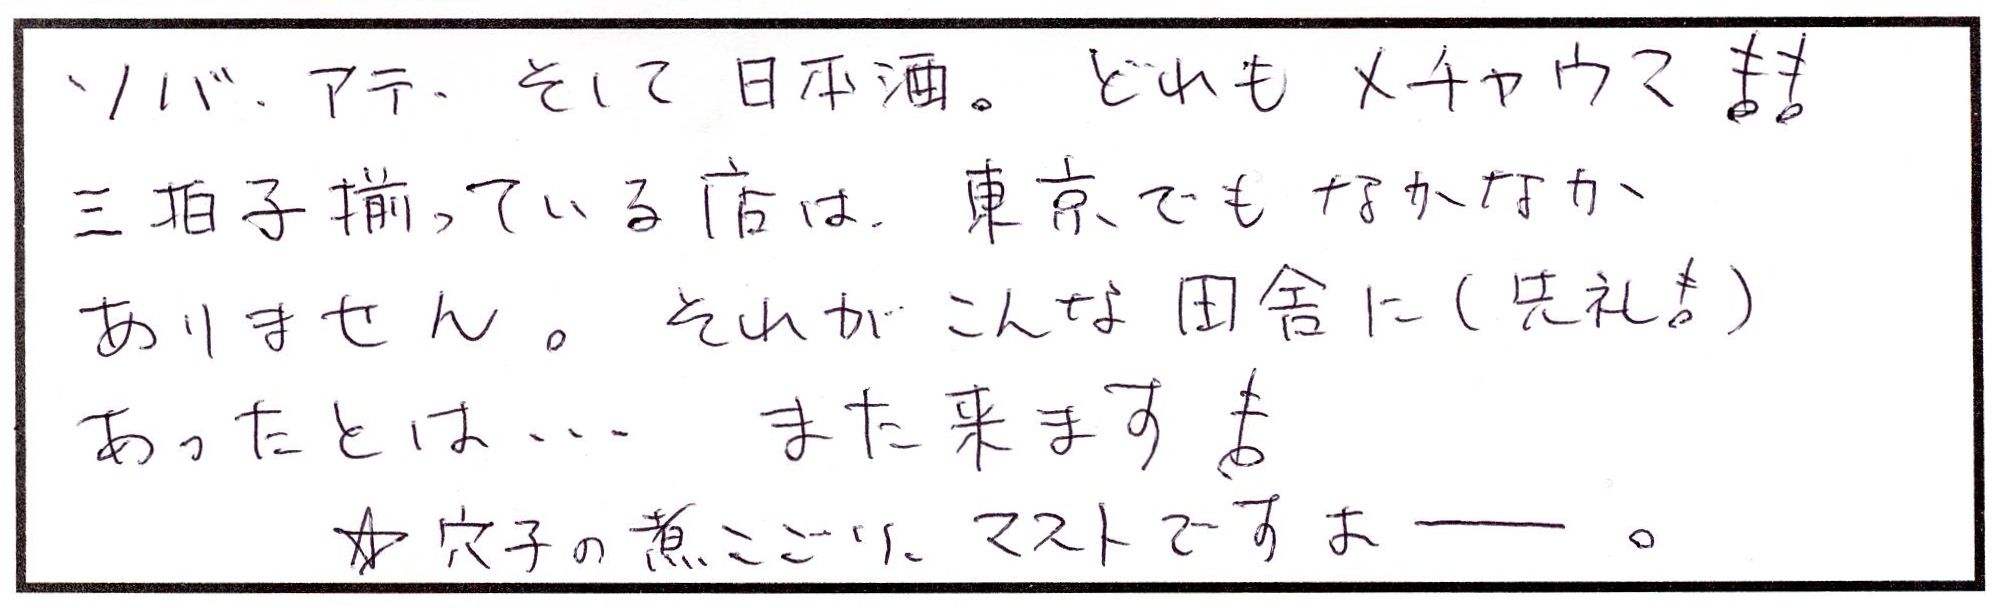 ソバ、アテ、そして日本酒。どれもメチャウマ!!
三拍子揃っている店は、東京でもなかなか
ありません。それがこんな田舎に(失礼!)
あったとは… また来ます!
☆穴子の煮こごり、マストですよー。